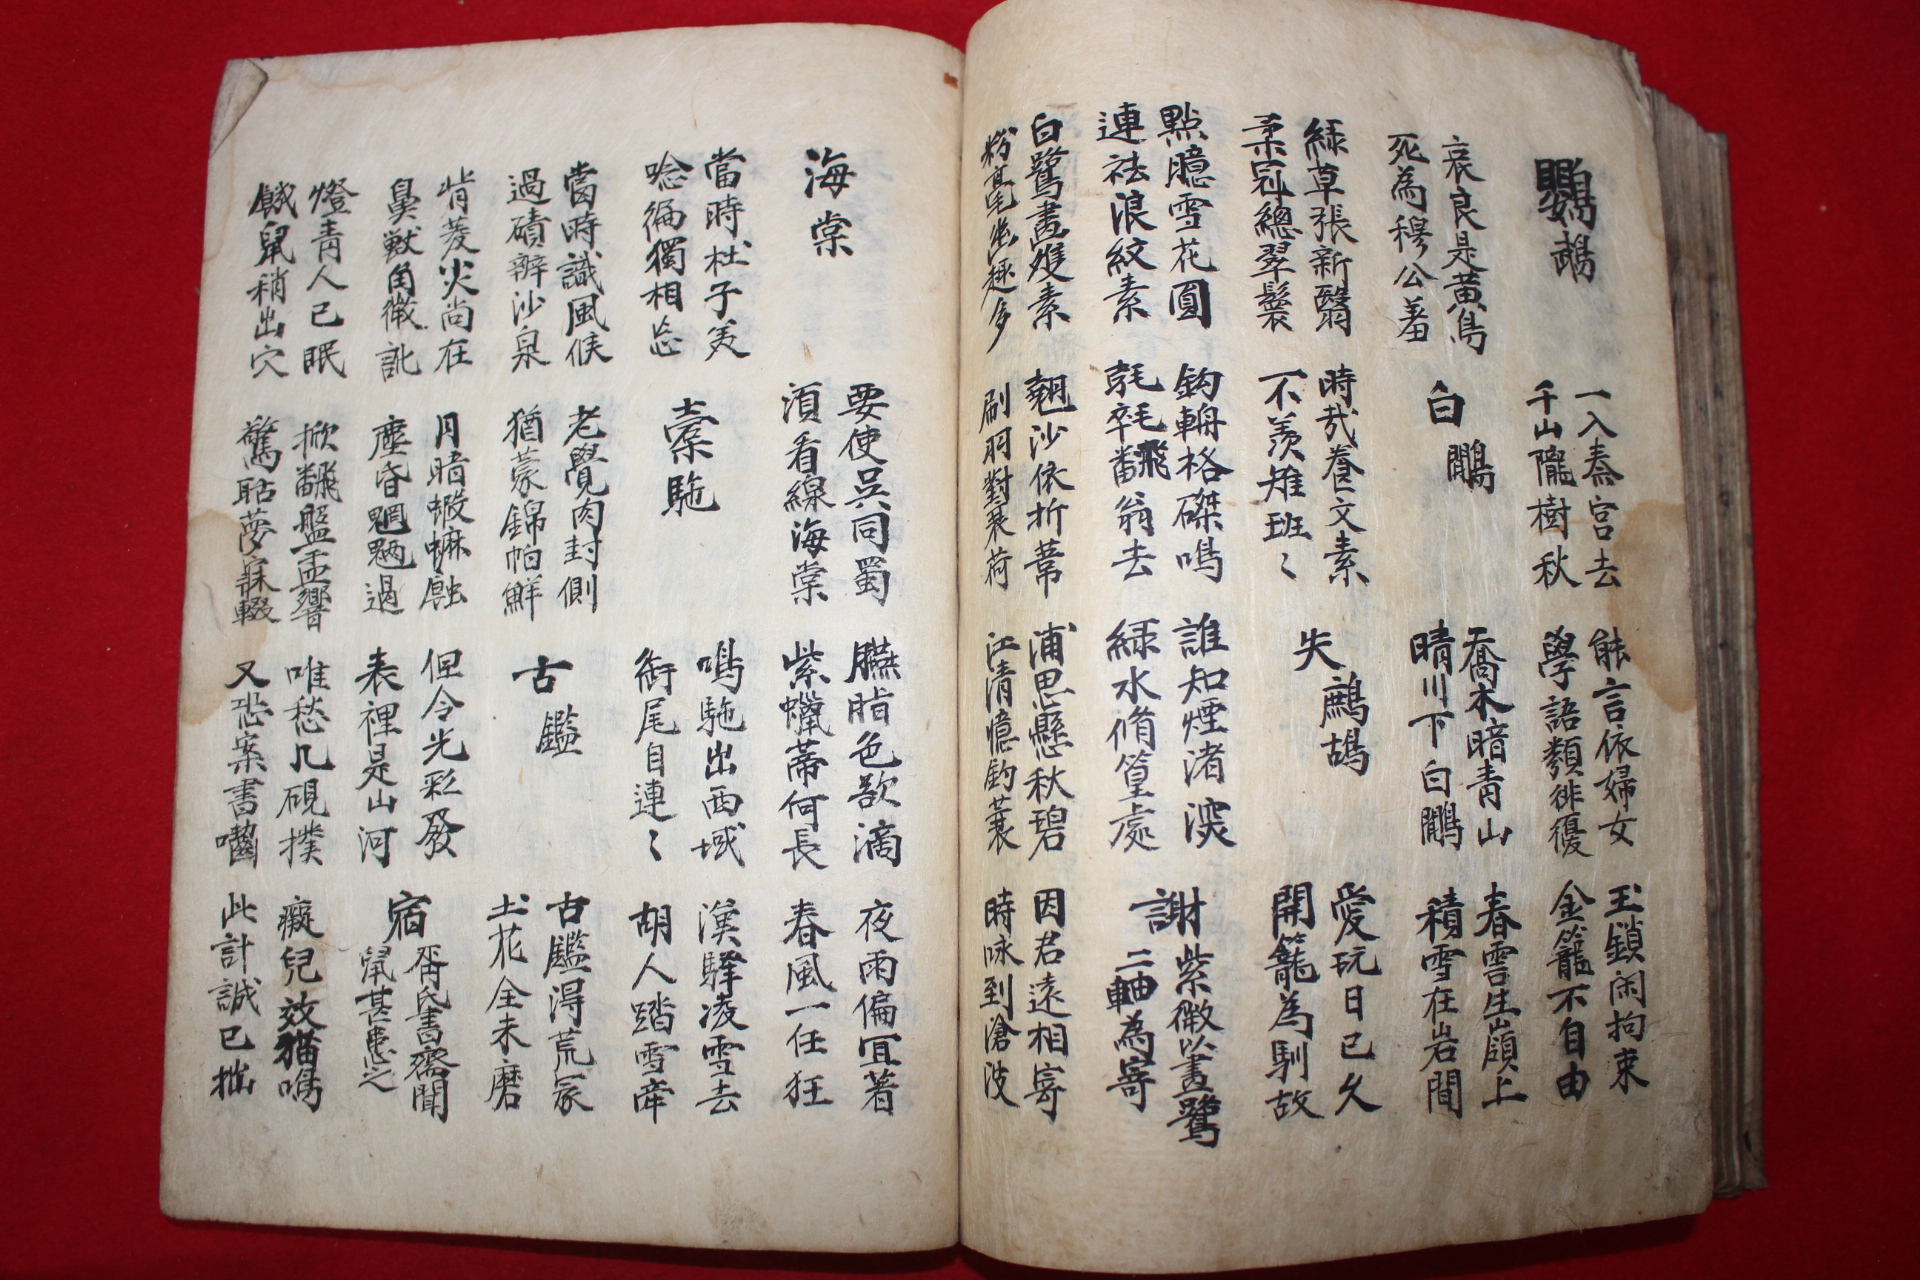 鸚鵡
一入秦宮去
千山隴樹秋
能言依婦女
學語類俳優
玉鎖闲拘束
金籠不自由
哀良是黃鳥
死為穆公羞
白鷳
喬木暗青山
晴川下白鷳
春雲生嶺上
積雪在岩間
綠草張新翳
柔冠總翠鬟
時哉養文素
不羨雉班〻
失鷓鴣
愛玩日已久
開籠為馴故
點臆雪花圓
連祛浪紋素
鈎輈格磔鳴
翻飛翁去
誰知煙渚深
綠水脩篁處
謝紫微以畫鷺
二軸為寄
白鷺畫雙素
粉毫幽趣多
翹沙依折葦
刷羽對荷
浦思懸秋碧
江清憶釣蓑
因君遠相寄
時咏到滄波
海棠
要使吳同蜀
須看線海棠
臙脂色欲滴
紫蠟蒂何長
夜雨偏宜著
春風一任狂
當時杜子美
唸徧獨相忘
橐駞
鳴駞出西域
銜尾自連〻
漠驛凌雪去
胡人踏雪牽
當時識風候
過磧辨沙泉
老覺肉封側
猶蒙錦帕鮮
古鑑
古鑑得荒冢
土花全未磨
背菱尖尚在
鼻獸角微訛
月暗蝦蟆蝕
塵昏魍魎過
但令光彩發
表裡是山河
宿胥氏書齋聞
鼠甚患之
燈青人已眠
餓鼠稍出穴
掀翻盤盂響
驚聒夢寐輟
唯愁几硯撲
又恐案書嚙
癡兒效猫鳴
此計誠已拙